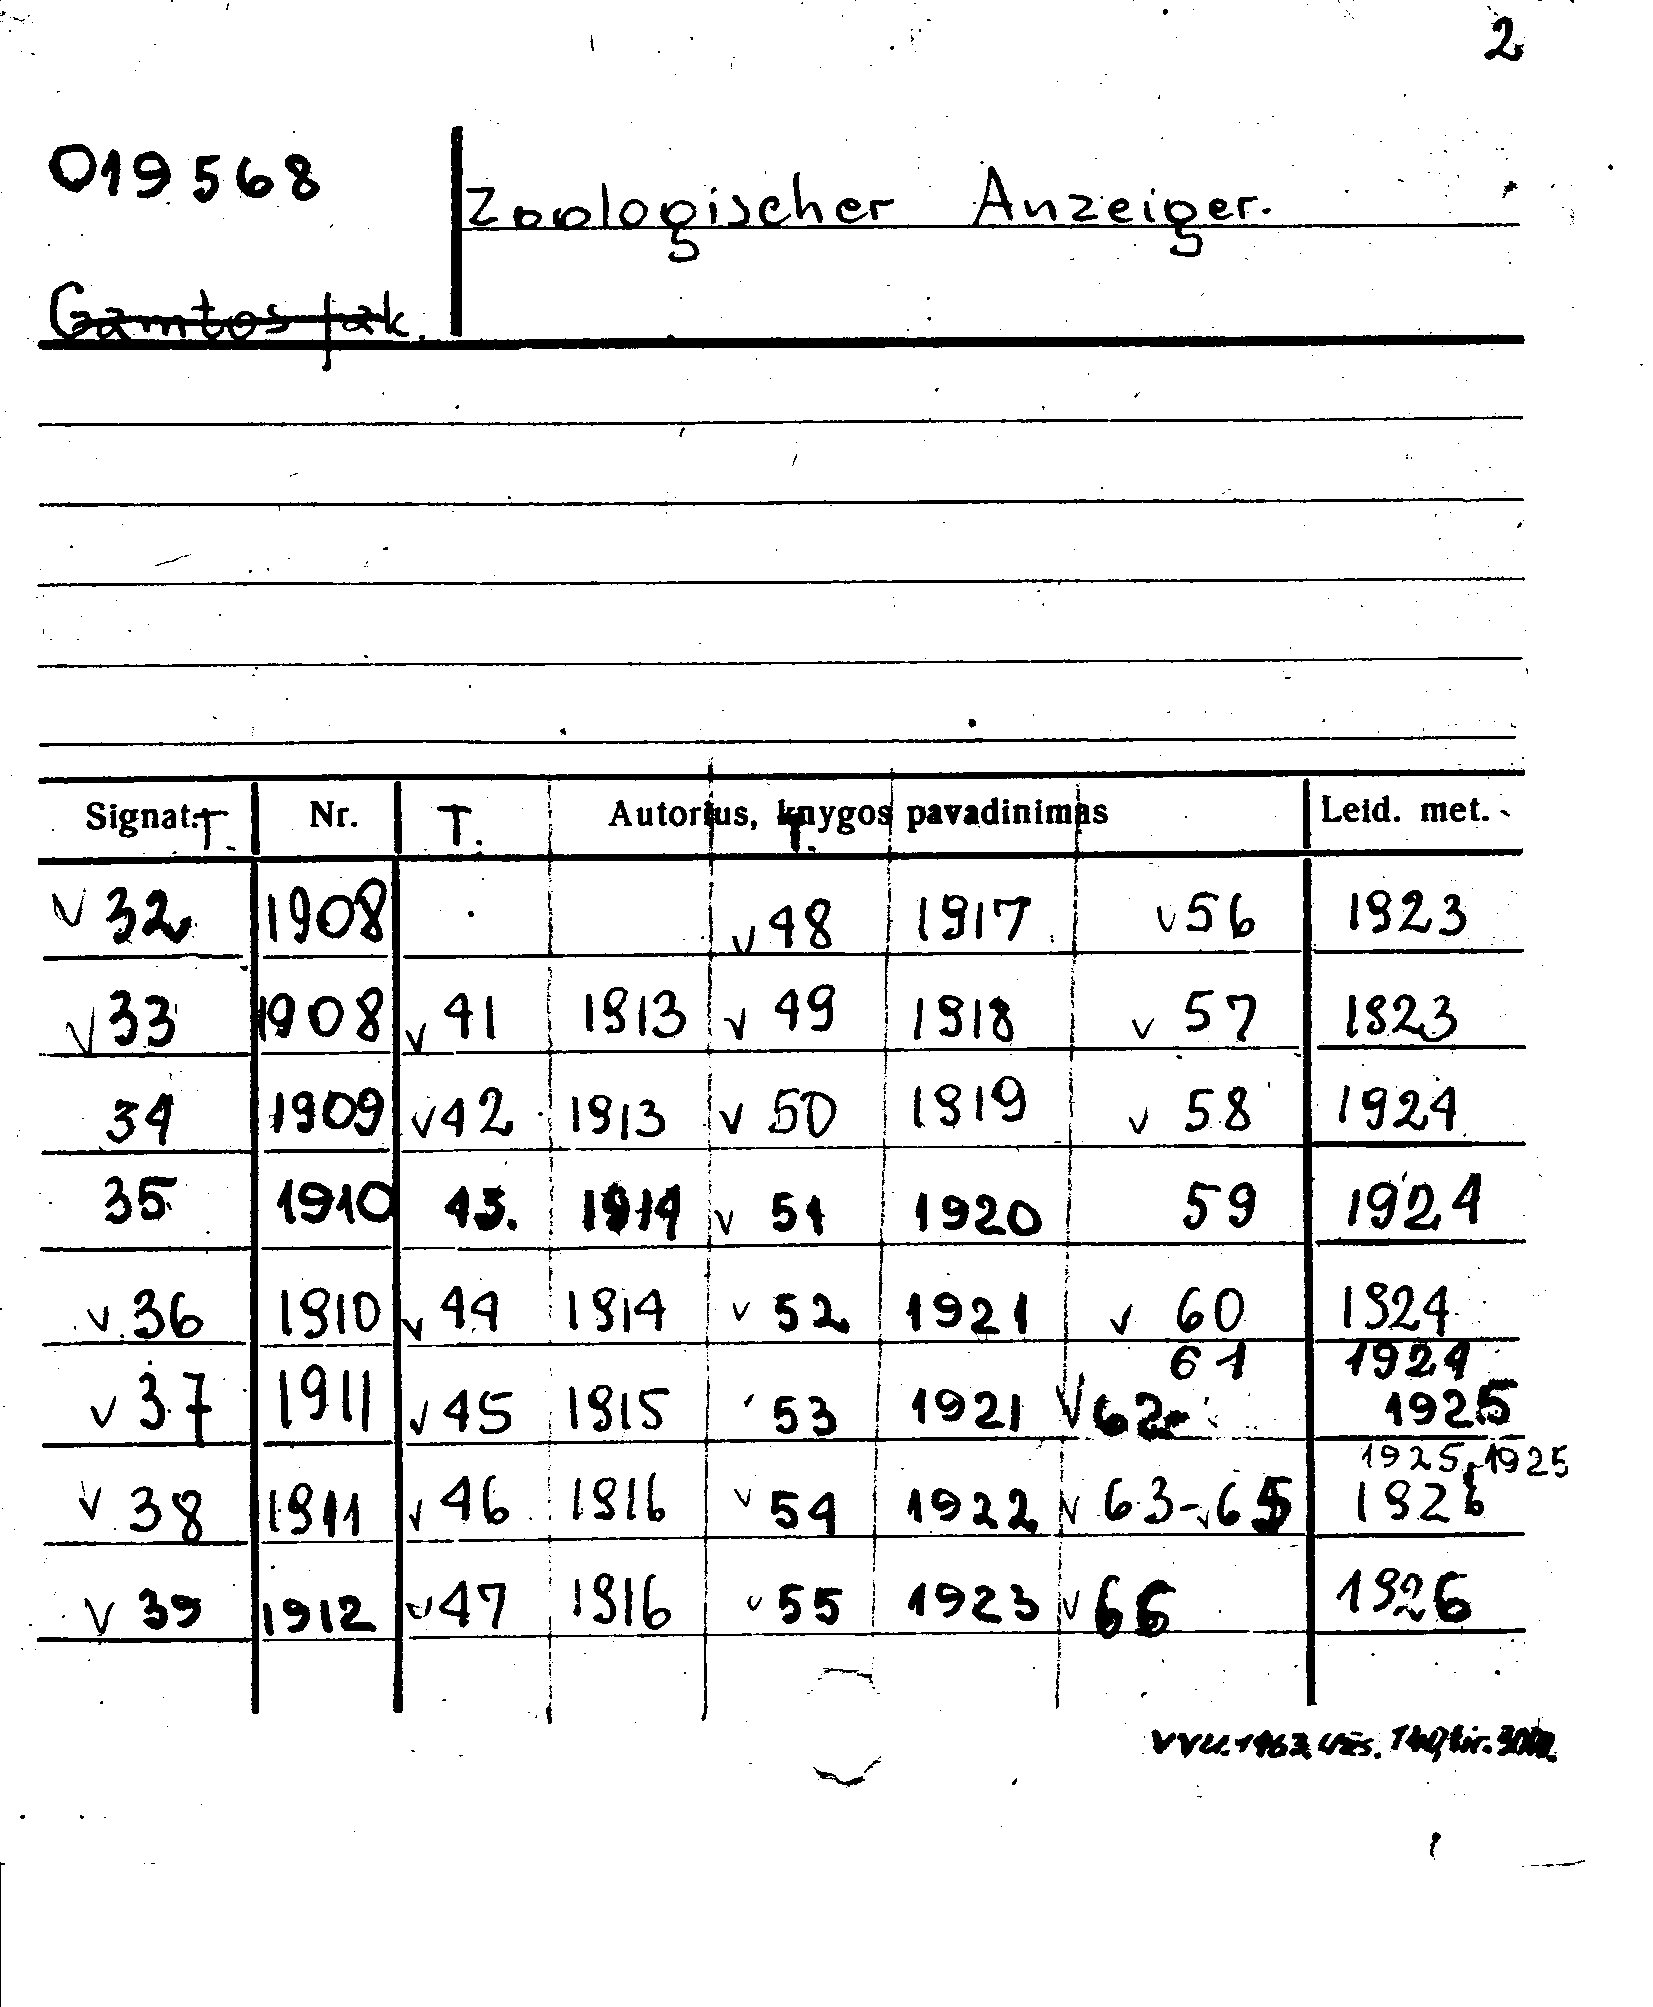 2
019568
Zoologischer Anzeiger.
Gamtos fak.
Signat. T. Nr. T. Autorius, knygos pavadinimas T. Leid. met.
v 32 1908 v 48 1917 v 56 1923
v 33 1908 v 41 1913 v 49 1918 v 57 1923
34 1909 v 42 1913 v 50 1919 v 58 1924
35 1910 43. 1914 v 51 1920 59 1924
v 36 1910 v 44 1914 v 52 1921 v 60 1924
61 1924
v 37 1911 v 45 1915 53 1921 v 62 1925
1925, 1925
v 38 1911 v 46 1916 v 54 1922 v 63-v65 1926
v 39 1912 v 47 1916 v 55 1923 v 66 1926
VVU. 1963 Užs.